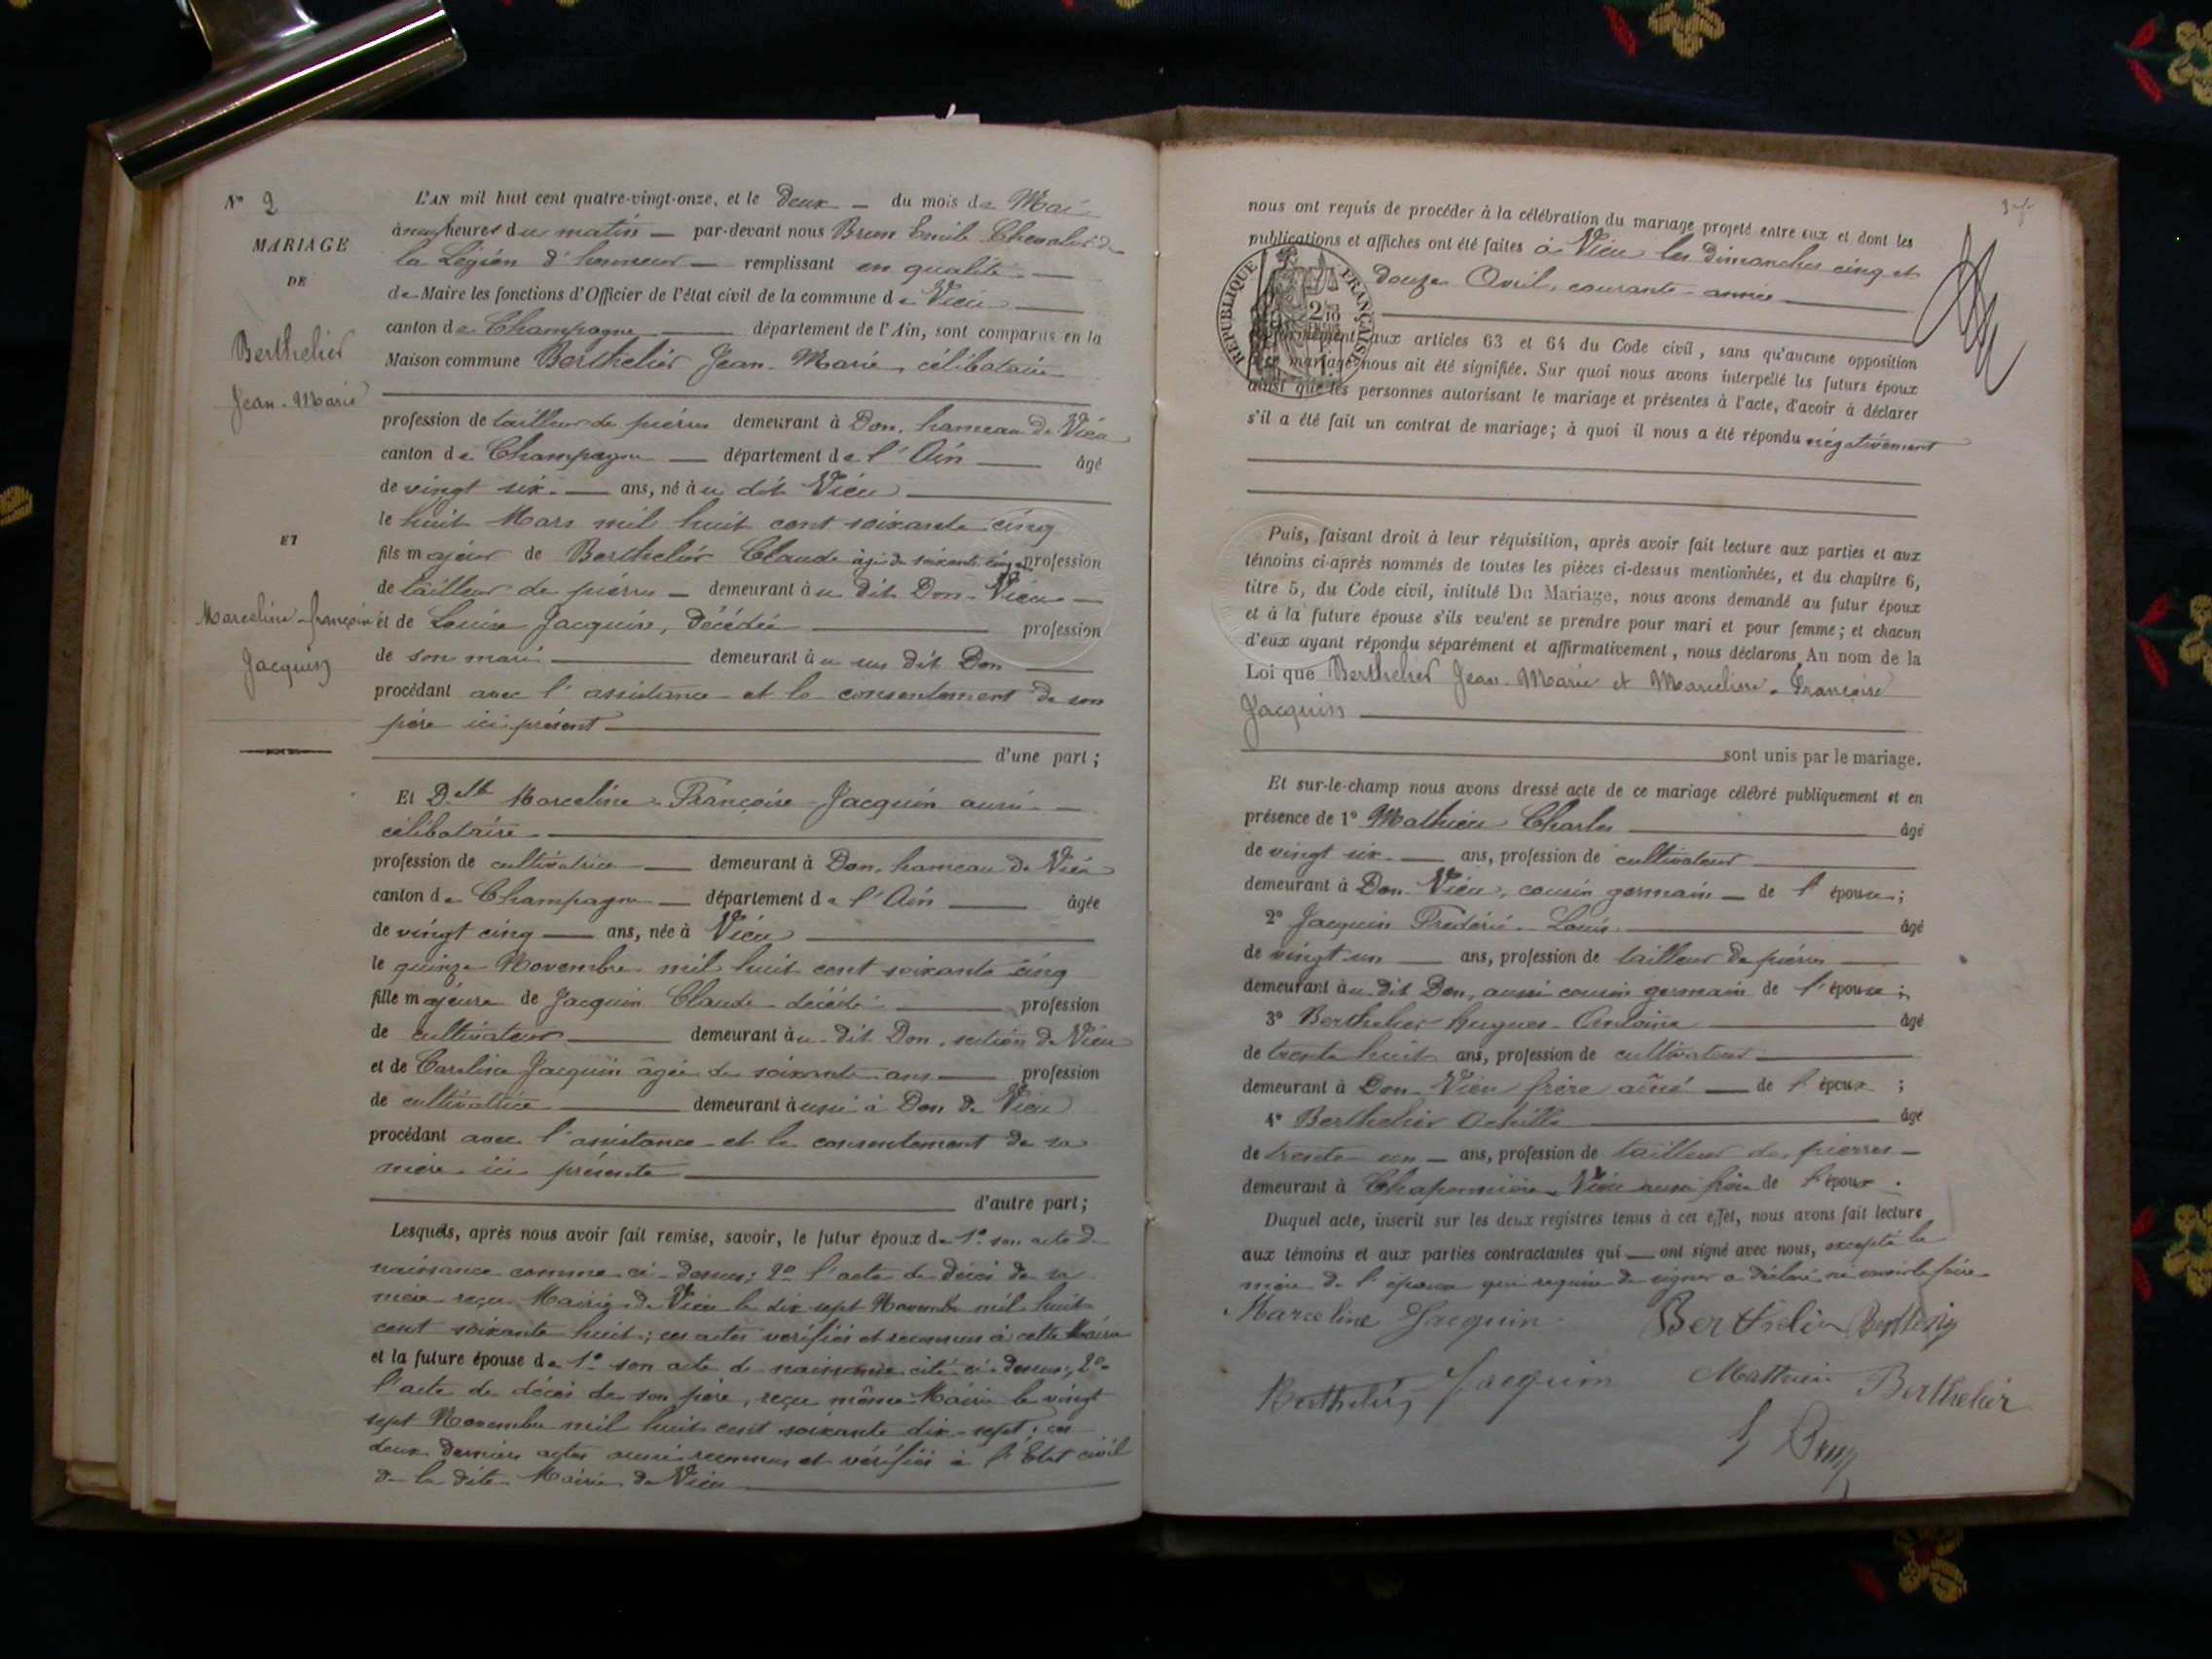 N° 2
MARIAGE
DE
Berthelier
Jean-Marie
ET
Marceline-françoise
Jacquin
L'AN mil huit cent quatre-vingt-onze, et le deux du mois de Mai
à neuf heures du matin par-devant nous Brun Emile Chevalier de
la Légion d'honneur remplissant en qualité
de Maire les fonctions d'Officier de l'état civil de la commune de Vieu
canton de Champagne département de l'Ain, sont comparus en la
Maison commune Berthelier Jean-Marie, célibataire
profession de tailleur de pierres demeurant à Don, hameau de Vieu
canton de Champagne département de l'Ain âgé
de vingt six ans, né à u dit Vieu
le huit Mars mil huit cent soixante cinq
fils majeur de Berthelier Claude âgé de soixante cinq ans profession
de tailleur de pierres demeurant à u dit Don-Vieu
et de Louise Jacquin, décédée profession
de son mari demeurant à u sus dit Don
procédant avec l'assistance et le consentement de son
père ici présent
d'une part;
Et Delle Marceline-Françoise Jacquin aussi
célibataire
profession de cultivatrice demeurant à Don, hameau de Vieu
canton de Champagne département de l'Ain âgée
de vingt cinq ans, née à Vieu
le quinze Novembre mil huit cent soixante cinq
fille majeure de Jacquin Claude décédé profession
de cultivateur demeurant à u dit Don, section de Vieu
et de Caroline Jacquin âgée de soixante ans profession
de cultivatrice demeurant à ussi à Don de Vieu
procédant avec l'assistance et le consentement de sa
mère ici présente
d'autre part;
Lesquels, après nous avoir fait remise, savoir, le futur époux de 1° son acte de
naissance comme ci-dessus; 2° l'acte de décès de sa
mère reçu Mairie de Vieu le dix sept Novembre mil huit
cent soixante huit; ces actes vérifiés et reconnus à cette Mairie
et la future épouse de 1° son acte de naissance cité ci-dessus; 2°
l'acte de décès de son père, reçu même Mairie le vingt
sept Novembre mil huit cent soixante dix-sept; ces
deux derniers actes aussi reconnus et vérifiés à l'Etat civil
de la dite Mairie de Vieu
nous ont requis de procéder à la célébration du mariage projeté entre eux et dont les
publications et affiches ont été faites à Vieu les dimanches cinq et
douze Avril, courante année
RÉPUBLIQUE FRANÇAISE
aux articles 63 et 64 du Code civil, sans qu'aucune opposition
mariage nous ait été signifiée. Sur quoi nous avons interpellé les futurs époux
ainsi que les personnes autorisant le mariage et présentes à l'acte, d'avoir à déclarer
s'il a été fait un contrat de mariage; à quoi il nous a été répondu négativement
Puis, faisant droit à leur réquisition, après avoir fait lecture aux parties et aux
témoins ci-après nommés de toutes les pièces ci-dessus mentionnées, et du chapitre 6,
titre 5, du Code civil, intitulé Du Mariage, nous avons demandé au futur époux
et à la future épouse s'ils veulent se prendre pour mari et pour femme; et chacun
d'eux ayant répondu séparément et affirmativement, nous déclarons, Au nom de la
Loi que Berthelier Jean-Marie et Marceline-Françoise
Jacquin
sont unis par le mariage.
Et sur-le-champ nous avons dressé acte de ce mariage célébré publiquement et en
présence de 1° Mathieu Charles âgé
de vingt six ans, profession de cultivateur
demeurant à Don-Vieu, cousin germain de l'épouse;
2° Jacquin Frédéric-Louis âgé
de vingt un ans, profession de tailleur de pierres
demeurant à u dit Don, aussi cousin germain de l'épouse;
3° Berthelier hugues-Antoine âgé
de trente huit ans, profession de cultivateur
demeurant à Don-Vieu frère aîné de l'époux;
4° Berthelier Achille âgé
de trente un ans, profession de tailleur de pierres
demeurant à Chaponnière-Vieu aussi frère de l'époux.
Duquel acte, inscrit sur les deux registres tenus à cet effet, nous avons fait lecture
aux témoins et aux parties contractantes qui ont signé avec nous, excepté la
mère de l'épouse qui requise de signer a déclaré ne savoir le faire
Marceline Jacquin Berthelier
Berthelier Jacquin Mathieu Berthelier
E Brun